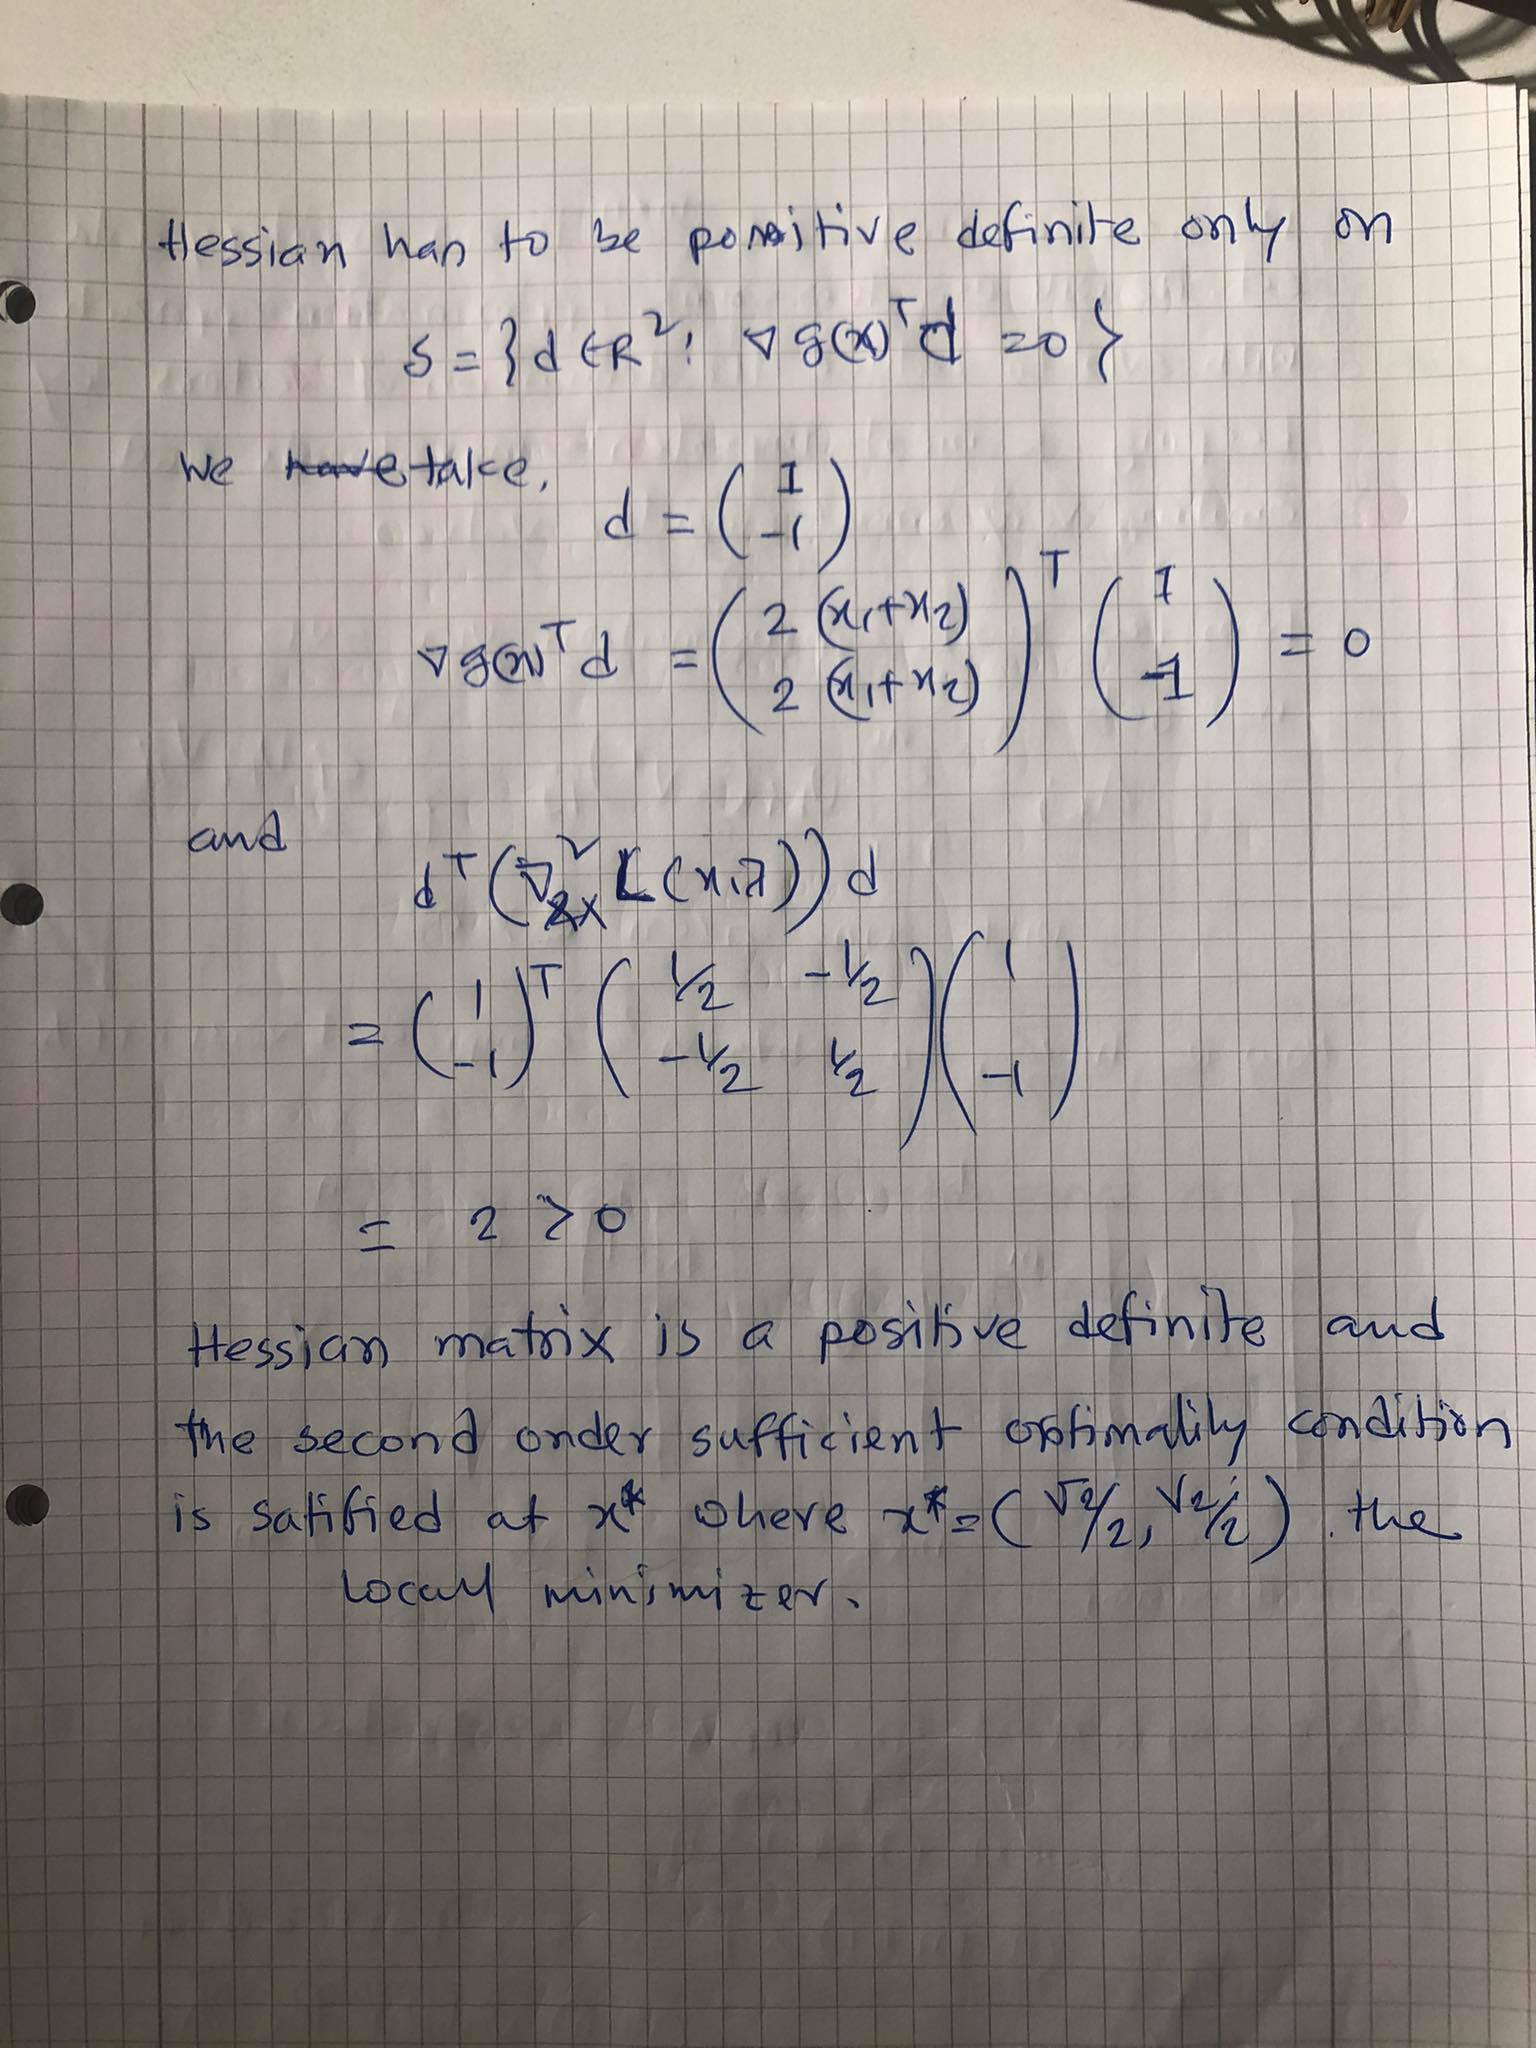 Hessian has to be positive definite only on
S = {d ∈ R²: ∇g(x)ᵀd = 0}
We take,
d = (1 -1)
∇g(x)ᵀd = (2(x₁+x₂) 2(x₁+x₂))ᵀ (1 -1) = 0
and
dᵀ(∇²ₓₓ L(x,λ))d
= (1 -1)ᵀ (1/2 -1/2 -1/2 1/2)(1 -1)
= 2 > 0
Hessian matrix is a positive definite and
the second order sufficient optimality condition
is satified at x* where x* = (√2/2, √2/2). the
local minimizer.